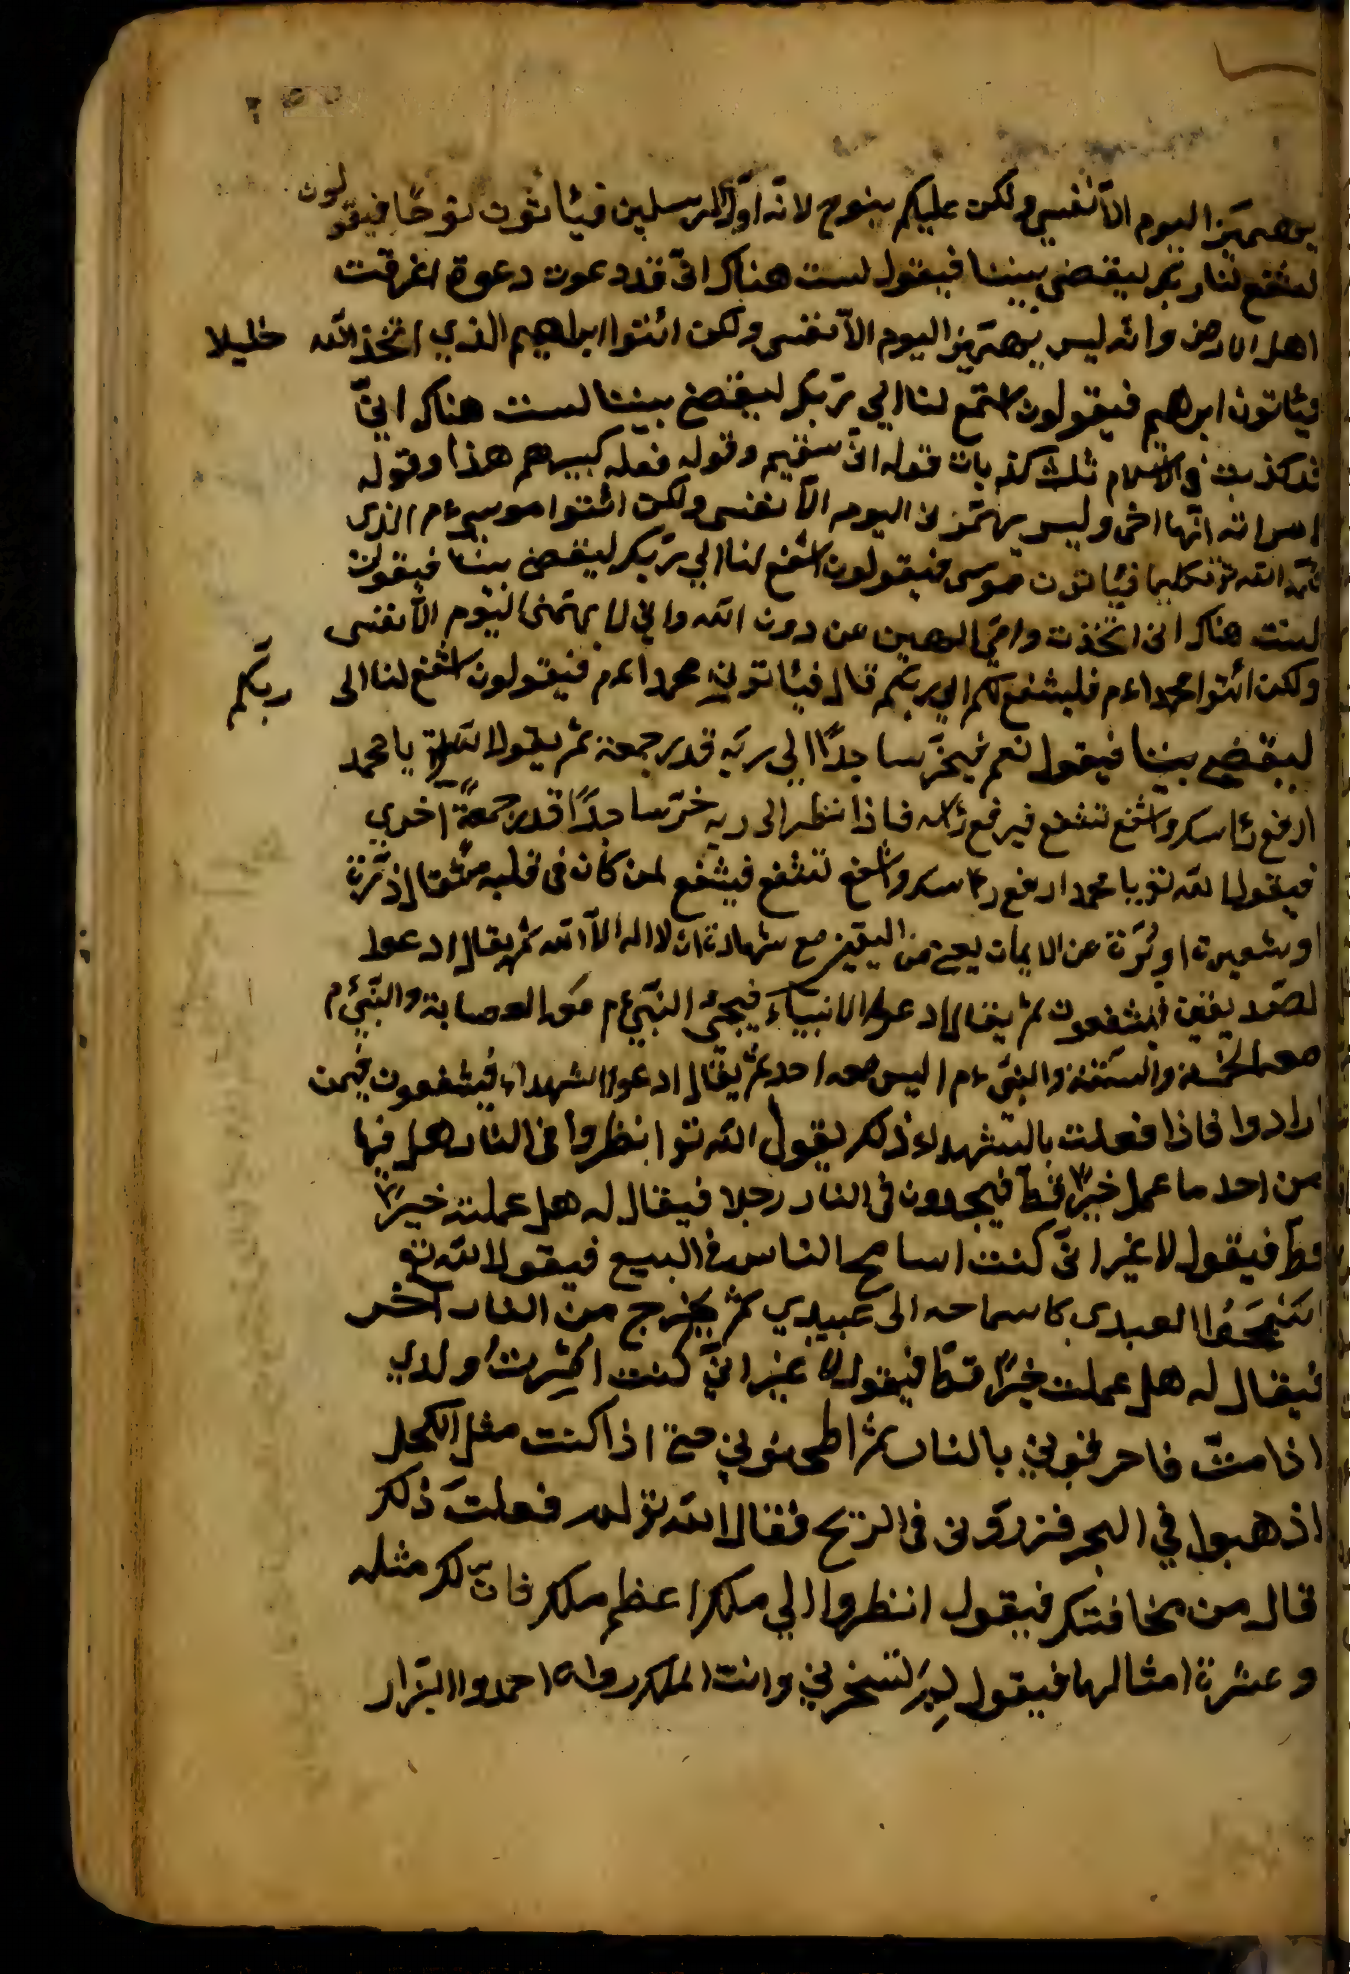 اليوم الّا نفسي ولكن عليكم بنوح لانّه اوّل المرسلين فيأتون نوحًا فيقولون
اشفع لنا ربك ليقضي بيننا فيقول لست هناك انّي قد دعوت دعوة اغرقت
اهل الارض وانّه ليس اليوم الّا نفسي ولكن ائتوا ابراهيم الذي اتخذ الله خليلا
فيأتون ابرهيم فيقولون اشفع لنا الي ربّك ليقضي بيننا لست هناك انّي
قد كذبت في الاسلام ثلث كذبات قوله انّي سقيم وقوله فعله كبيرهم هذا وقوله
انّها اختي وليس يهمّني اليوم الّا نفسي ولكن ائتوا موسي عم الذي
الله تع تكليما فيأتون موسى فيقولون اشفع لنا الي ربّك ليقضي بيننا فيقول
لست هناك انى اتخذت وامّي الهين من دون الله واني لا يهمّني اليوم الّا نفسى
ولكن ائتوا محمدا عم فليشفع لكم الي ربّكم قال فيأتوني محمدا عم فيقولون اشفع لنا الى ربّكم
ليقضي بيننا فيقول نعم فيخرّ ساجدًا الي ربّه قدر جمعة ثم يقول الله يا محمد
ارفع رأسك واشفع تشفع فيرفع رأسه فاذا نظر الى ربه خرّ ساجدًا قدر جمعة اخري
فيقول الله تع يا محمد ارفع رأسك واشفع تشفع فيشفع لمن كان في قلبه مثقال ذرّة
او شعيرة او بُرّة من الايمان يعني من اليقين مع شهادة ان لا اله الّا الله ثم يقال ادعوا
الصّديقين فيشفعون ثم يقال ادعوا الانبيآء فيجئ النبيّ عم معه العصابة والنبيّ عم
معه الخمسة والستّة والنبيّ عم ليس معه احد ثم يقال ادعوا الشهداء فيشفعون فيمن
ارادوا فاذا فعلت بالشهداء ذلك يقول الله تع انظروا في النار هل فيها
من احد ما عمل خيرًا قطّ فيجدون في النار رجلا فيقال له هل عملت خيرًا
قطّ فيقول لا غير انّي كنت اسامح الناس في البيع فيقول الله تع
اسمحوا لعبدى كاسماحه الى عبيدي ثم يخرج من النار آخر
فيقال له هل عملت خيرًا قطّ فيقول لا غير انّي كنت امرت ولدي
اذا متّ فاحرقوني بالنار ثم اطحنوني حتى اذا كنت مثل الكحل
اذهبوا في البحر فذروني في الريح فقال الله تع لم فعلت ذلك
قال من مخافتك فيقول انظروا الي ملك اعظم ملك فانّ لك مثله
وعشرة امثالها فيقول لِمَ تسخر بي وانت الملك رواه احمد والبزار